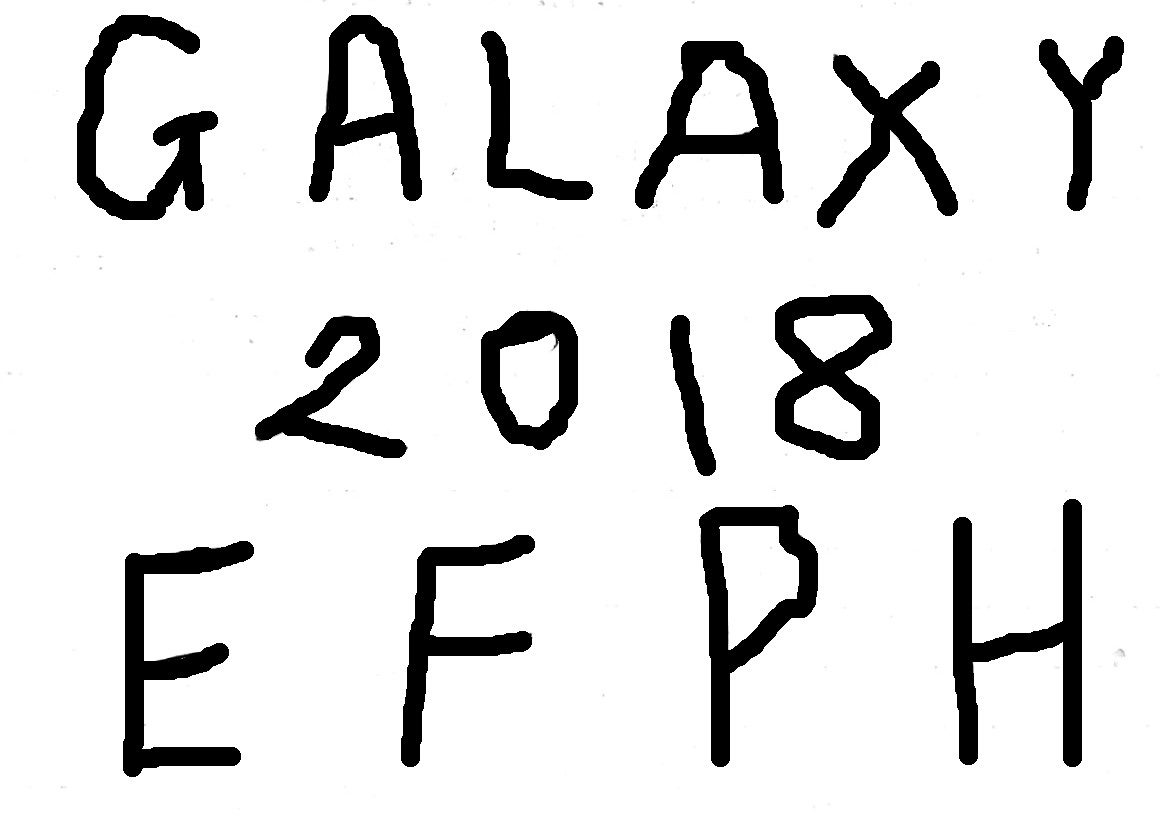 GALAXY
2018
EFPH